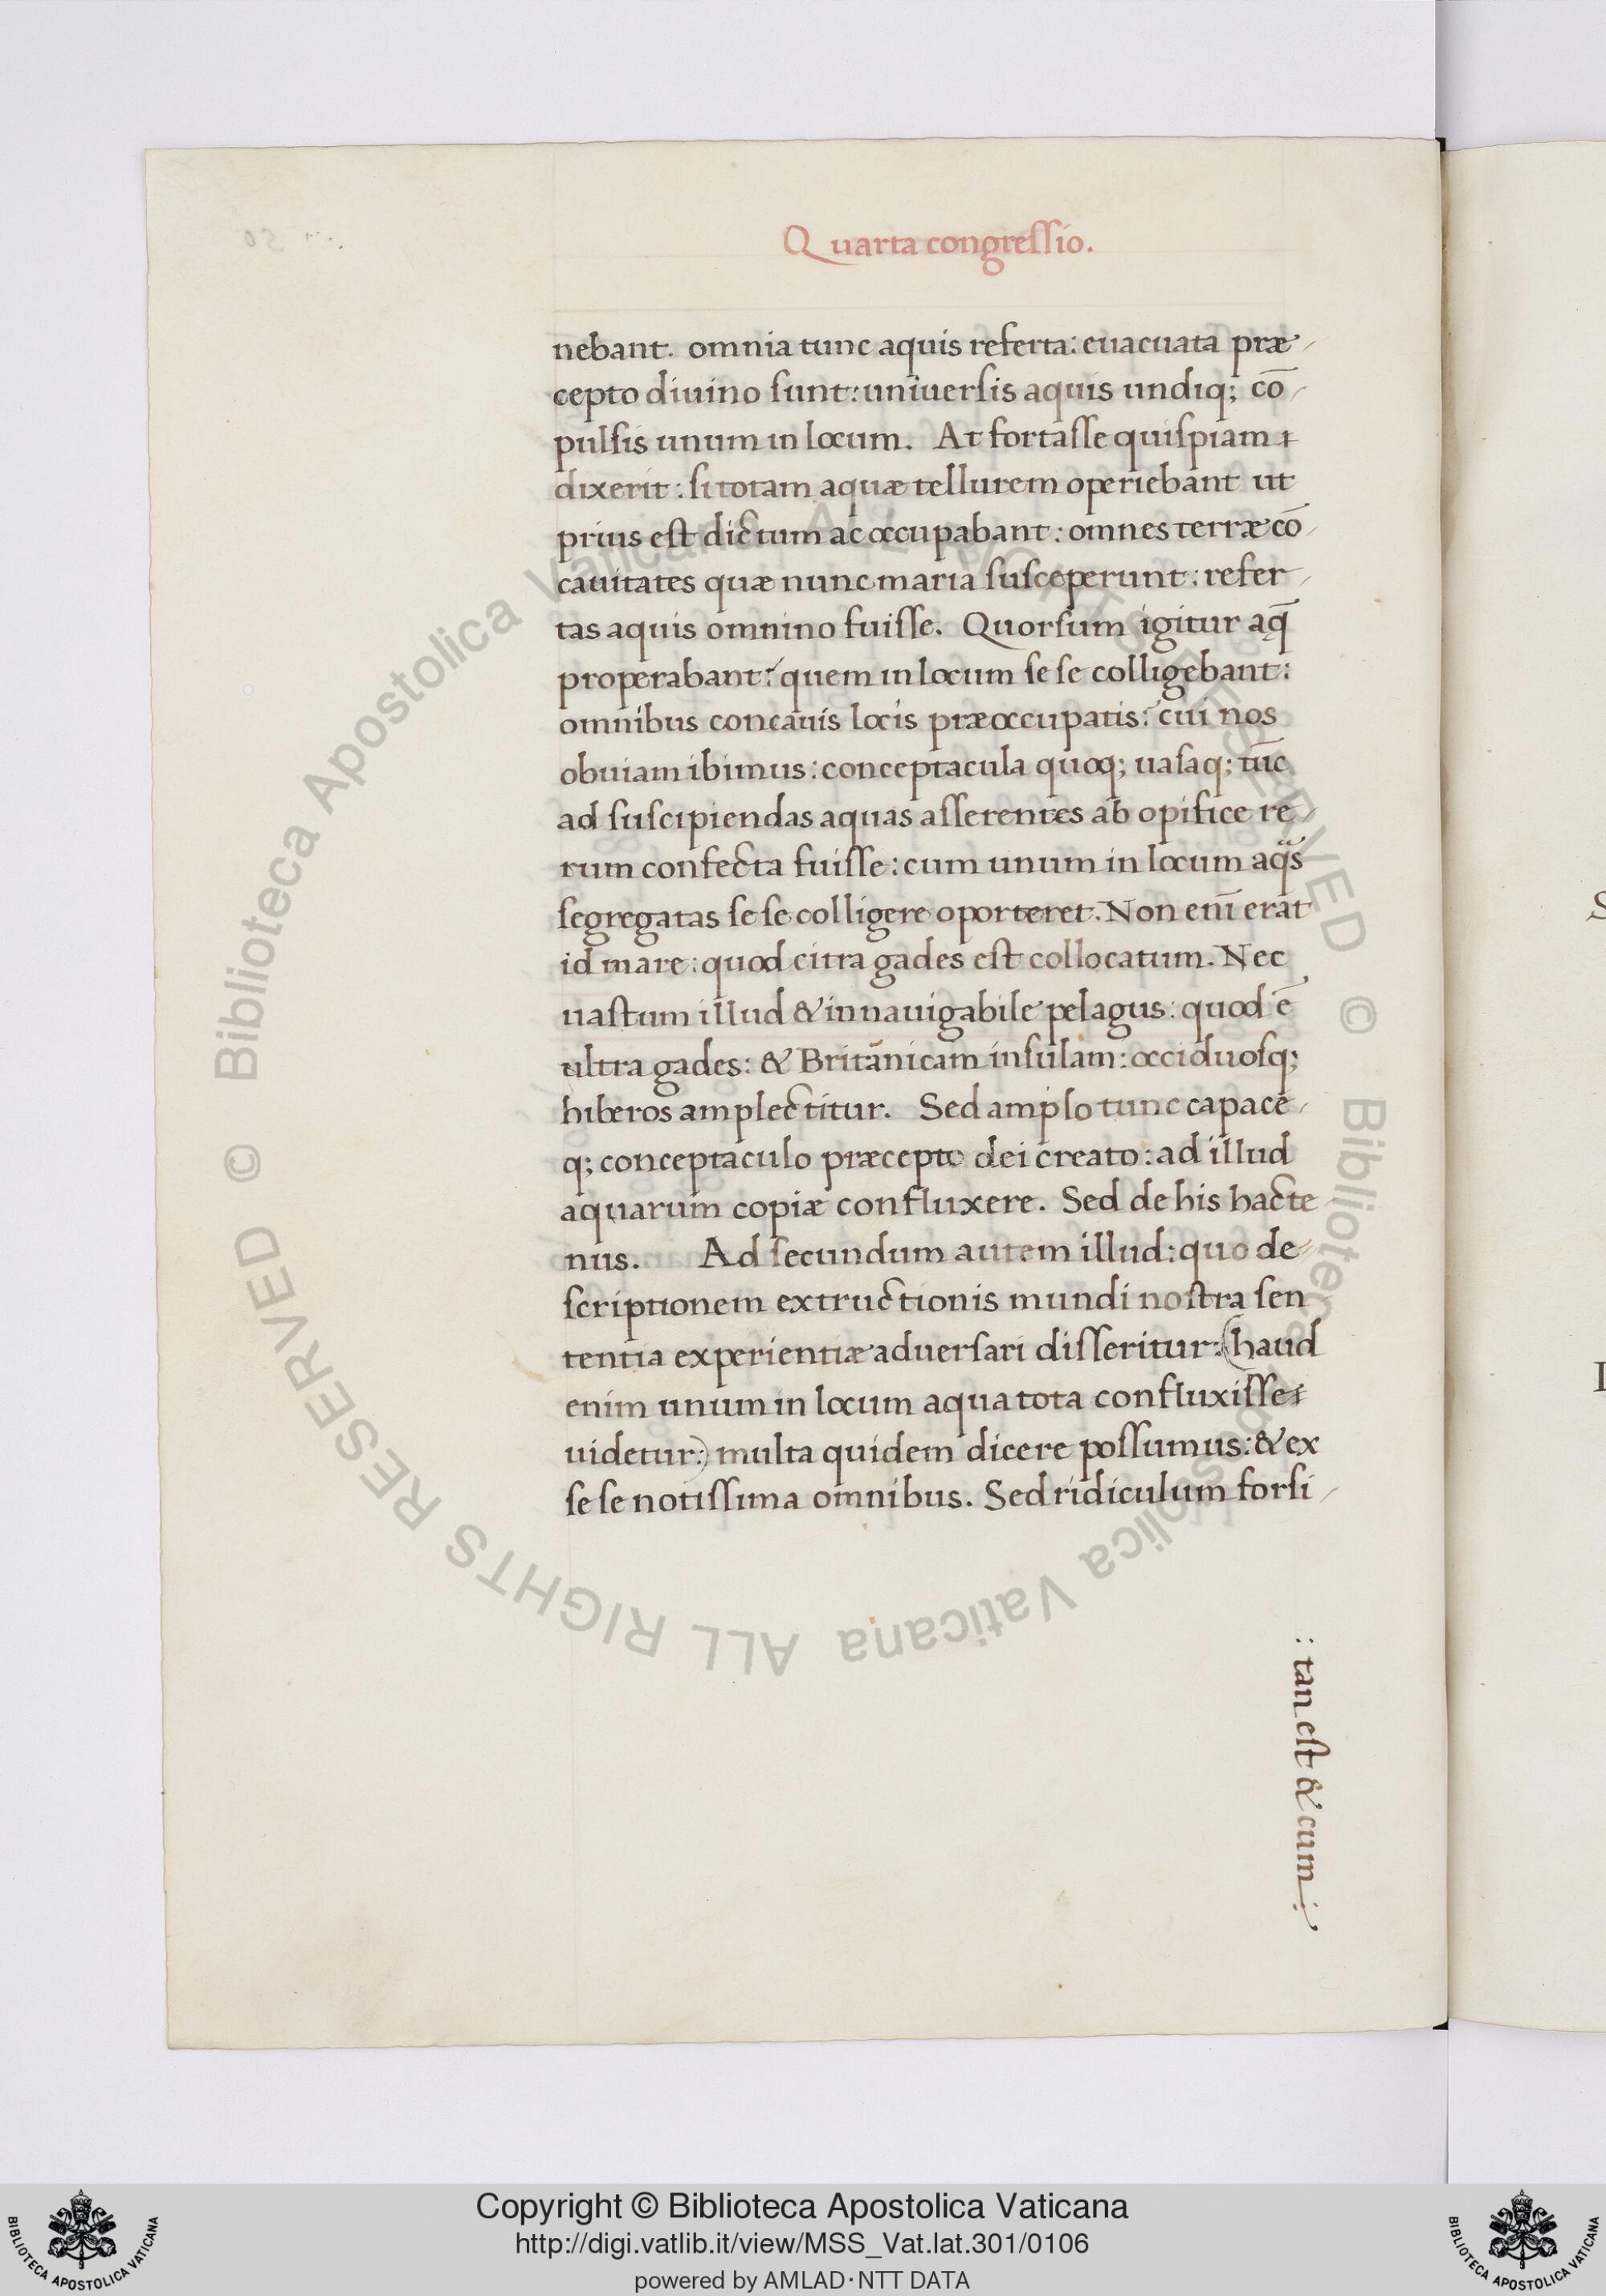 Quarta congressio.
nebant. omnia tunc aquis referta: euacuata præ-
cepto diuino sunt: uniuersis aquis undiq; cō-
pulsis unum in locum. At fortasse quispiam
dixerit: si totam aquæ tellurem operiebant ut
prius est dictum ac occupabant: omnes terræ cō-
cauitates quæ nunc maria susceperunt: refer-
tas aquis omnino fuisse. Quorsum igitur aq̄
properabant? quem in locum se se colligebant:
omnibus concauis locis præoccupatis? cui nos
obuiam ibimus: conceptacula quoq; uasaq; tūc
ad suscipiendas aquas asserentes ab opifice re-
rum confecta fuisse: cum unum in locum aq̈s
segregatas se se colligere oporteret. Non eni̅ erat
id mare: quod citra gades est collocatum. Nec
uastum illud & innauigabile pelagus: quod ē
ultra gades: & Britānicam insulam: occiduosq;
hiberos amplectitur. Sed amplo tunc capace-
q; conceptaculo præcepto dei creato: ad illud
aquarum copiæ confluxere. Sed de his hacte
nus. Ad secundum autem illud: quo de-
scriptionem extructionis mundi nostra sen
tentia experientiæ aduersari disseritur: (haud
enim unum in locum aqua tota confluxisse
uidetur:) multa quidem dicere possumus: & ex
se se notissima omnibus. Sed ridiculum forsi-
: tan est & cum :
© Biblioteca Apostolica Vaticana ALL RIGHTS RESERVED © Biblioteca Apostolica Vaticana ALL RIGHTS RESERVED
Copyright © Biblioteca Apostolica Vaticana
http://digi.vatlib.it/view/MSS_Vat.lat.301/0106
powered by AMLAD·NTT DATA
BIBLIOTECA APOSTOLICA VATICANA
BIBLIOTECA APOSTOLICA VATICANA